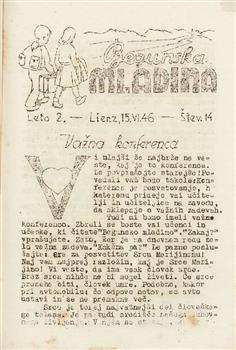 Begunska
MLADINA
Leto 2. — Lienz, 15.VI.46 — Štev. 14
Važna konferenca
Vi mlajši še najbrže ne veste, kaj je to konferenca.
Le povprašajte starejše! Povedali vam bodo takole: Konferenca je posvetovanje, h kateremu pridejo vsi učitelji in učiteljice na zavodu, da sklepajo o važnih zadevah.
Tudi mi bomo imeli važno
konferenco. Zbrali se boste vsi učenci in
učenke, ki čitate "Begunsko mladino". "Zakaj?"
vprašujete. Zato, ker je na dnevnem redu ze-
lo važna zadeva. "Kakšna pa?" Le pazno poslu-
šajte: gre za posvetitev Srcu Marijinemu!
Kaj vam najprej razložim, kaj je Srce Mari-
jino! Vi veste, da ima vsak človek srce.
Brez srca nihče ne bi mogel živeti. Če srce
preneha biti, človek umre. Podobno, kakor
pri avtomobilu: če odpove motor, se avto
ustavi in se ne premakne več.
Srce je torej najvažnejši del človeške-
ga telesa. Je pa tudi središče našega